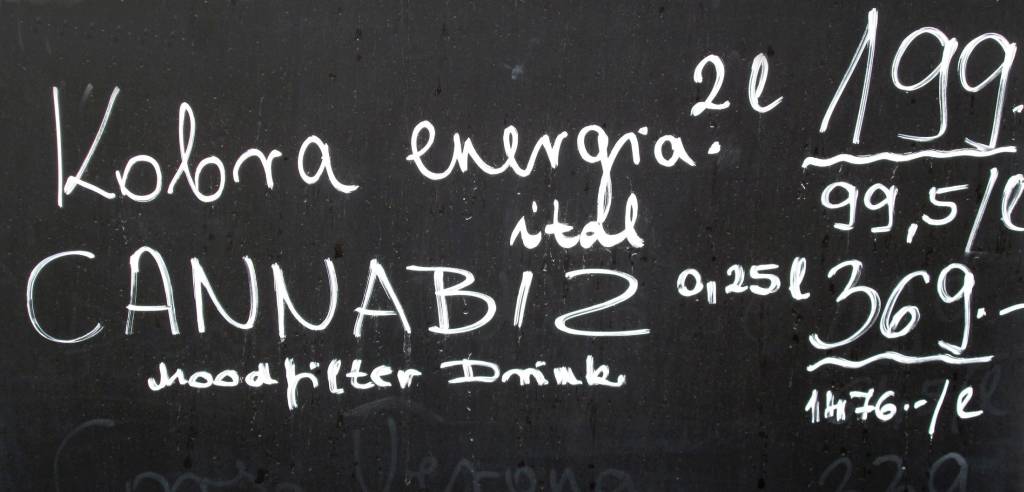 Kobra energia. 2l 199.
ital 99,5/l
CANNABIZ 0,25l 369.-
Moodfilter Drink
1476.-/l
229